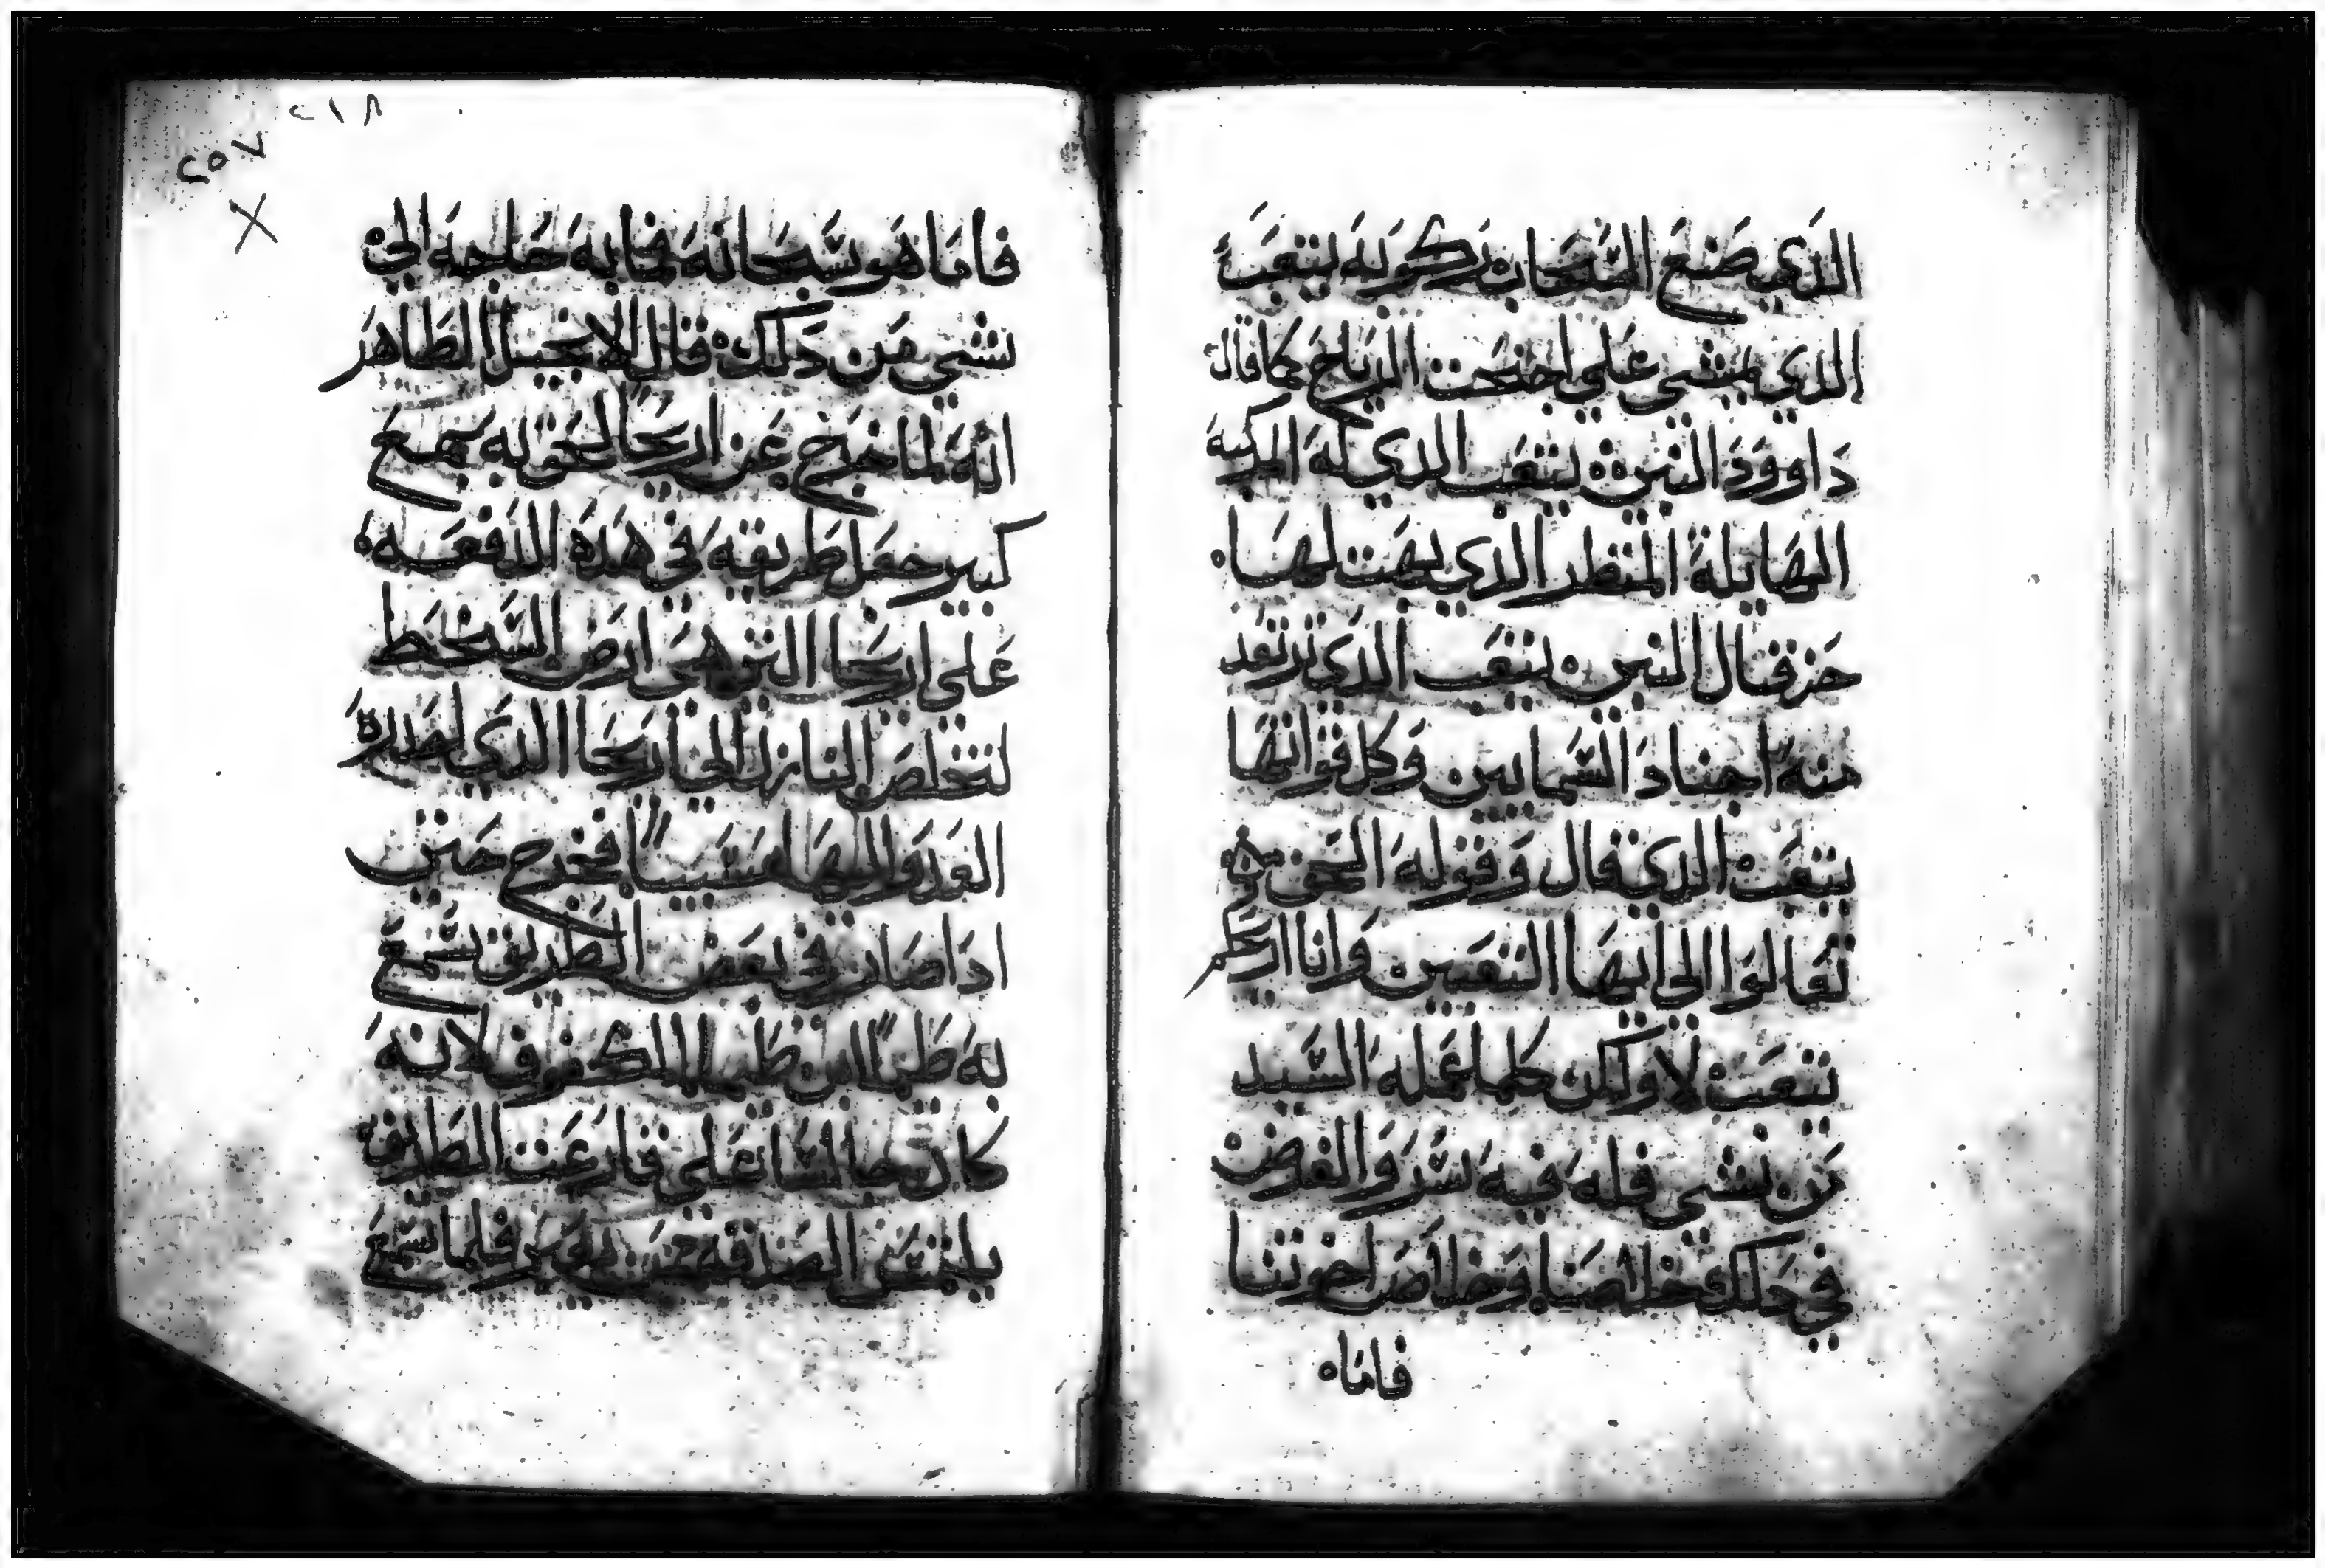 الذي صنع السحاب ركوبه يتعب
الذي يمشي على اجنحت الرياح كما قال
داوود النبي يتعب الذي له المركبه
الهايلة المنظر الذي بهت لها
حزقيال النبي يتعب الذي ترتعد
منه اجناد السمايين وكل قواتها
يتعب الذي قال وقوله الحق
تعالوا الي ايها التعبين وانا اريحكم
يتعب لا ولكن كلما عمله السيد
من شي فله فيه سر والغرض
في ذلك خلاصنا وخلاص اخوتنا
فاما
٢١٨
٢٥٧
فاما هو سبحانه فما به حاجه الي
شي من ذلك قال الانجيل الطاهر
انه لما خرج عن اريحا لحق به جمع
كبير جعل طريقه في هذه الدفعه
على اريحا التي هي ارض السخط
لتخلص النازل الي اريحا الذي
العدو اليها فخرج حتي
اذا صار في بعض الطريق سمع
به طيما ابن طيما المكفوف لانه
كان جالسا على قارعت الطريق
يلتمس الصدقه من فلما سمع